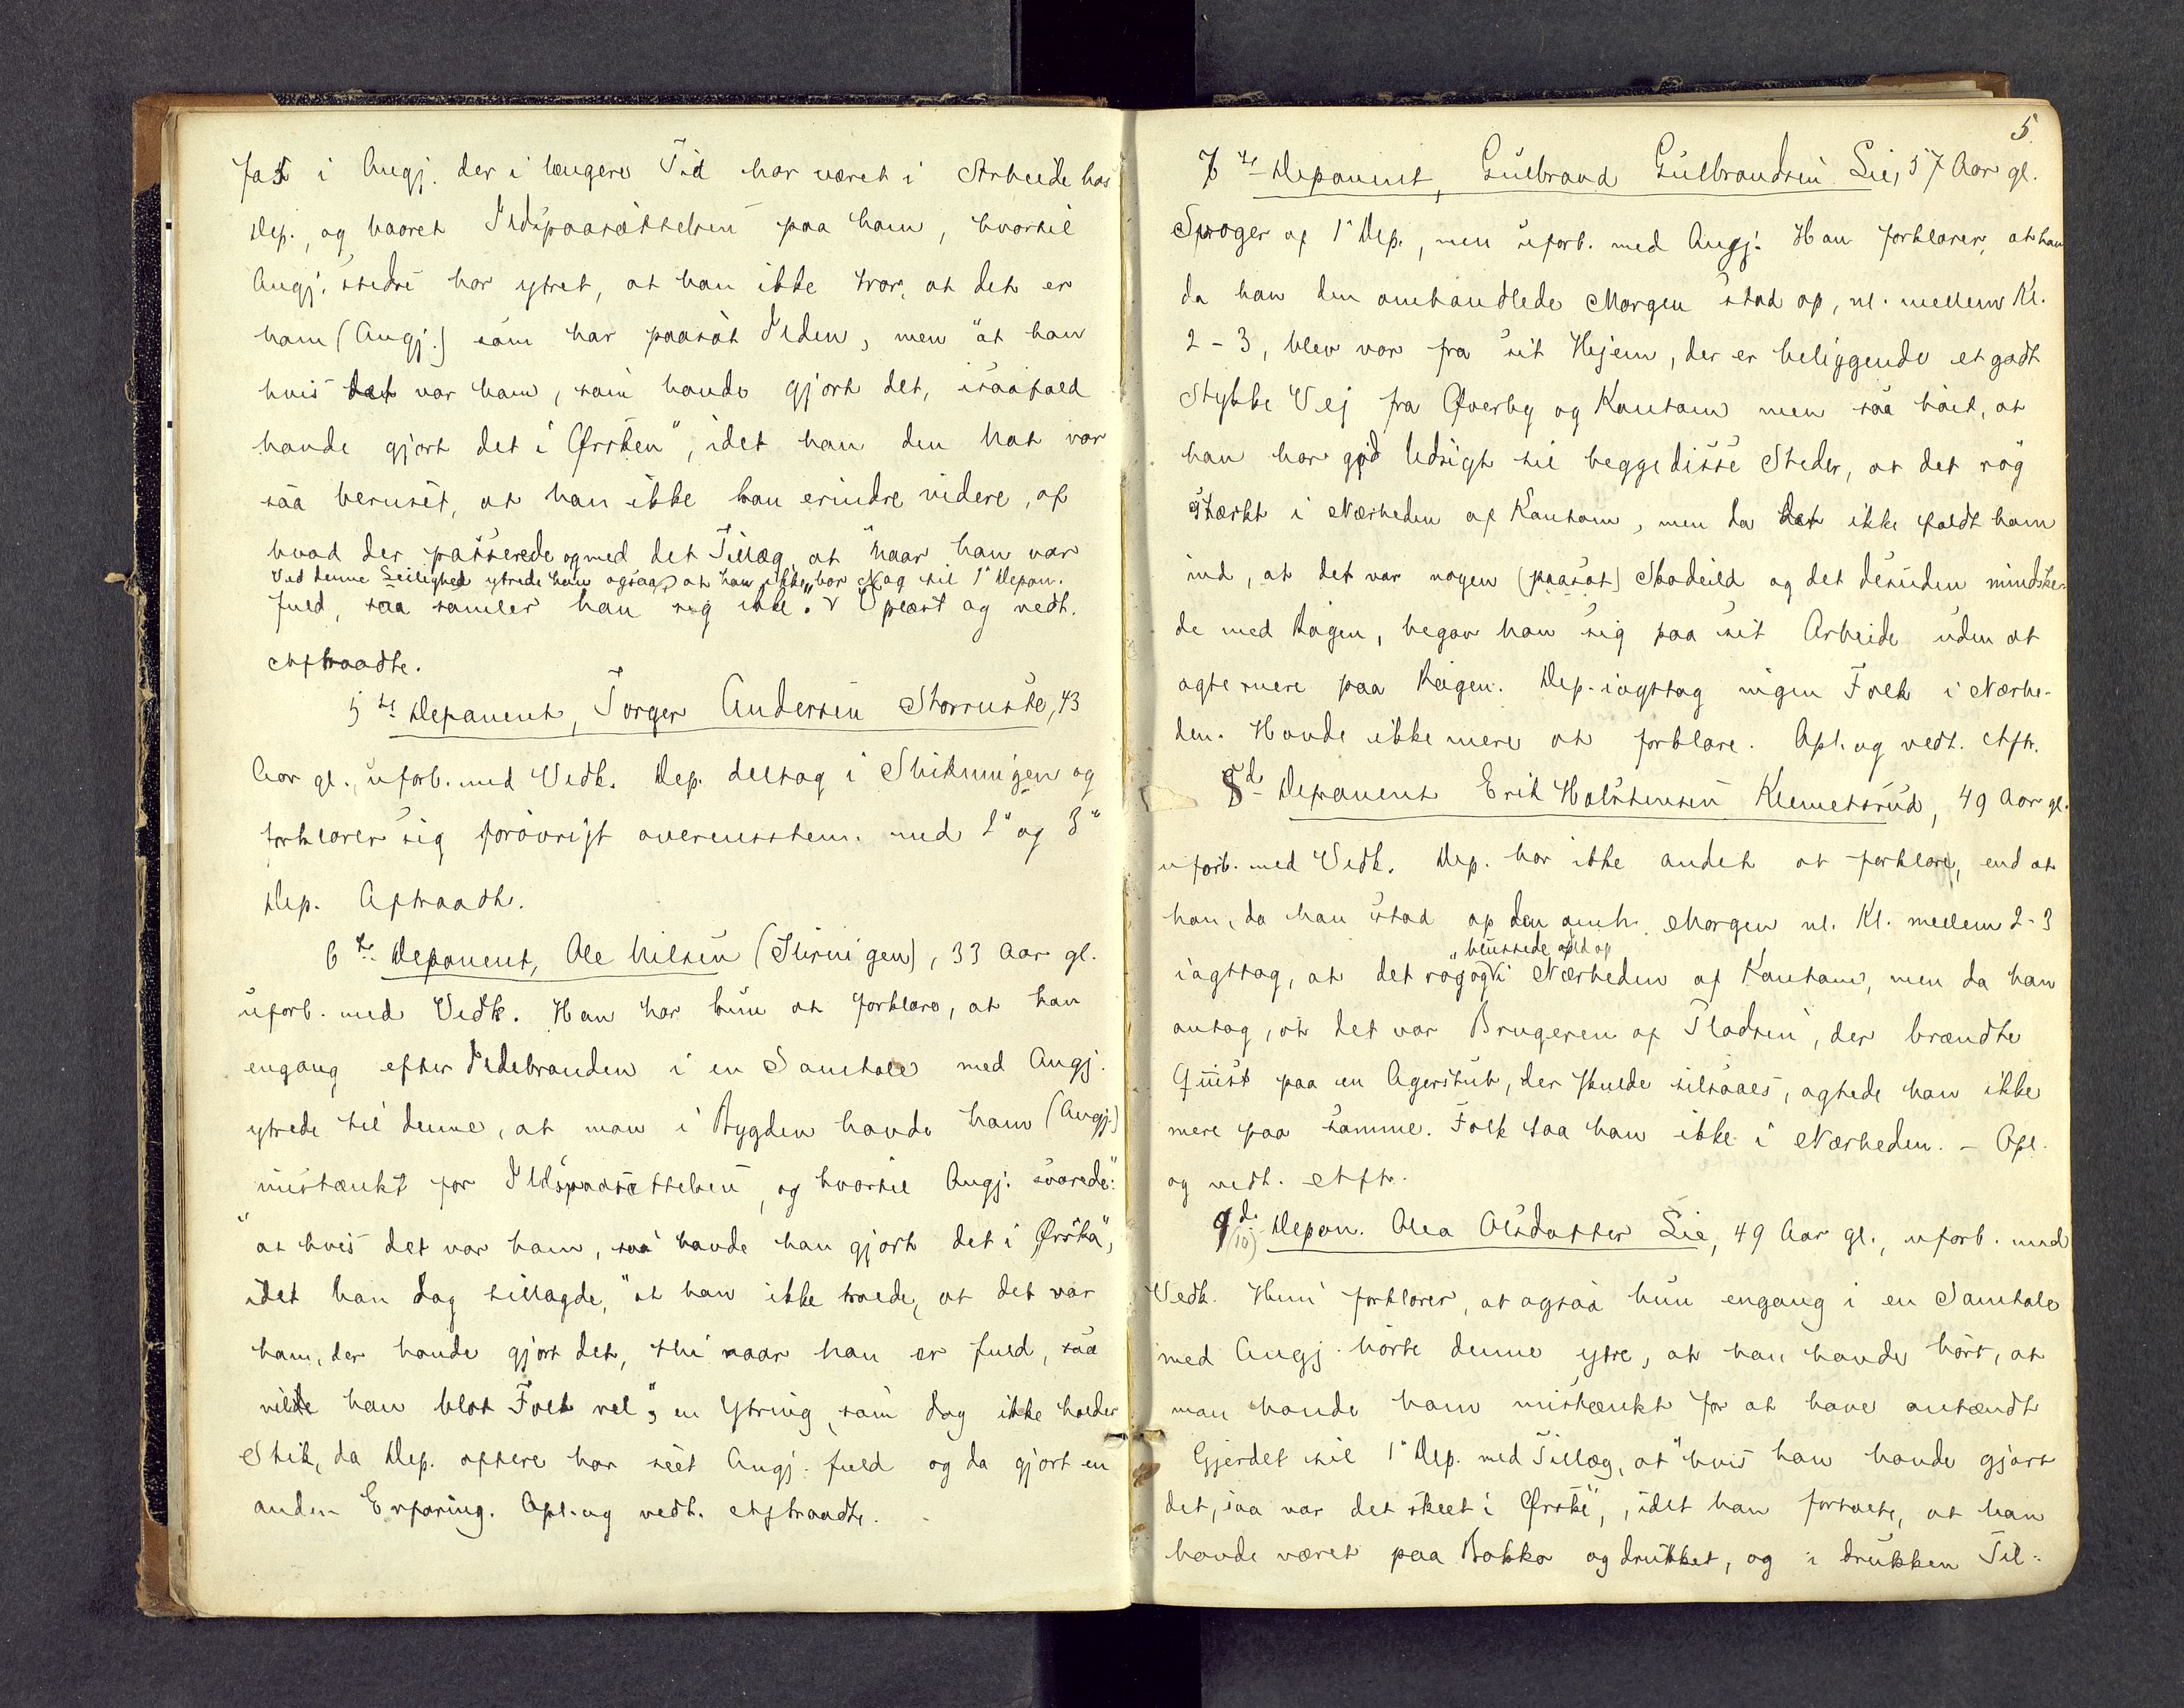 fat i Angj. der i længere Tid har været i Arbeide hos
Dep., og baaret Ildspaasættelsen paa ham, hvortil
Angj. stedse har ytret, at han ikke tror, at det er
ham (Angj.) som har paasat Ilden, men "at han
hvis det var ham, som havde gjort det, isaafald
havde gjort det i Ørsken", idet han den Nat var
saa beruset, at han ikke kan erindre videre, af
hvad der passerede og med det Tillæg, at "naar han var
Ved denne Leilighed ytrede han ogsaa, at han ikke "bar Nag til 1ste Depon.
fuld, saa samler han sig ikke". Oplæst og vedt.
Aftraadte.
5te Deponent, Torger Andersen Storruste, 43
Aar gl., uforb. med Vedk. Dep. deltog i Slukningen og
forklarer sig forøvrigt overensstem. med 2" og 3"
Dep. Aftraadte.
6te Deponent, Ole Nilsen, 33 Aar gl.
uforb. med Vedk. Han har kun at forklare, at han
engang efter Ildebranden i en Samtale med Angj.
ytrede til denne, at man i Bygden havde ham (Angj.)
mistænkt for Ildspaasættelsen, og hvortil Angj. svarede:
"at hvis det var ham, saa havde han gjort det i Ørska",
idet han dog tillagde, "at han ikke troede, at det var
ham, der havde gjort det, thi naar han er fuld, saa
vilde han blot Folk vel", en Ytring, som dog ikke holder
Stik, da Dep. oftere har seet Angj. fuld og da gjort en
anden Erfaring. Opl. og vedt. Aftraadte.
5.
7de Deponent, Gulbrand Gulbrandsen Lie, 57 Aar gl.
Svoger af 1ste Dep., men uforb. med Angj. Han forklarer, at han
da han den omhandlede Morgen stod op, nl. mellem Kl.
2-3, blev var fra sit Hjem, der er beliggende et godt
Stykke Vej fra Øverby og Kantom men saa høit, at
han har god Udsigt til begge disse Steder, at det røg
stærkt i Nærheden af Kantom, men da det ikke faldt ham
ind, at det var nogen (paasat) Skadeild og det desuden mindske-
de med Røgen, begav han sig paa sit Arbeide uden at
agte mere paa Røgen. Dep. iagttog ingen Folk i Nærhe-
den. Havde ikke mere at forklare. Opl. og vedt. Aftr.
8de Deponent Erik Halstensen Klemetsrud, 49 Aar gl.
uforb. med Vedk. Dep. har ikke andet at forklare, end at
han, da han stod op den omh. Morgen nl. Kl. mellem 2-3
"blussede Ild op
iagttog, at det røg og i Nærheden af Kantom, men da han
antog, at det var Brugeren af Pladsen, der brændte
Qvist paa en Agerstub, der skulde tilsaaes, agtede han ikke
mere paa samme. Folk saa han ikke i Nærheden. - Opl.
og vedt. Aftr.
9de Depon. Olea Olsdatter Lie, 49 Aar gl., uforb. med
(10)
Vedk. Hun forklarer, at ogsaa hun engang i en Samtale
med Angj. hørte denne ytre, at han havde hørt, at
man havde ham mistænkt for at have antændt
Gjerdet til 1ste Dep. med Tillæg, at "hvis han havde gjort
det, saa var det skeet i Ørske", idet han fortalte, at han
havde været paa Bakka og drukket, og i drukken Til-